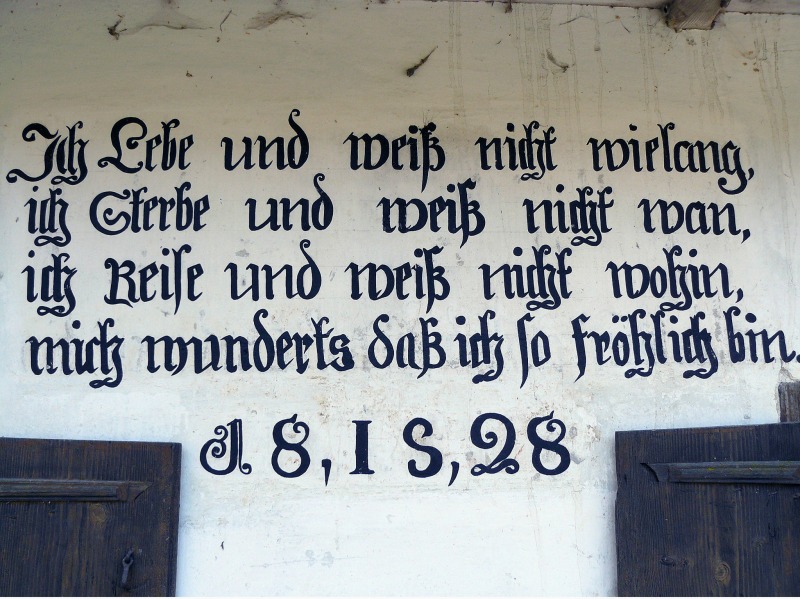 Ich Lebe und weiß nicht wielang,
ich Sterbe und weiß nicht wan,
ich Reise und weiß nicht wohin,
mich wunderts daß ich so fröhlich bin.
J 8, I S, 28